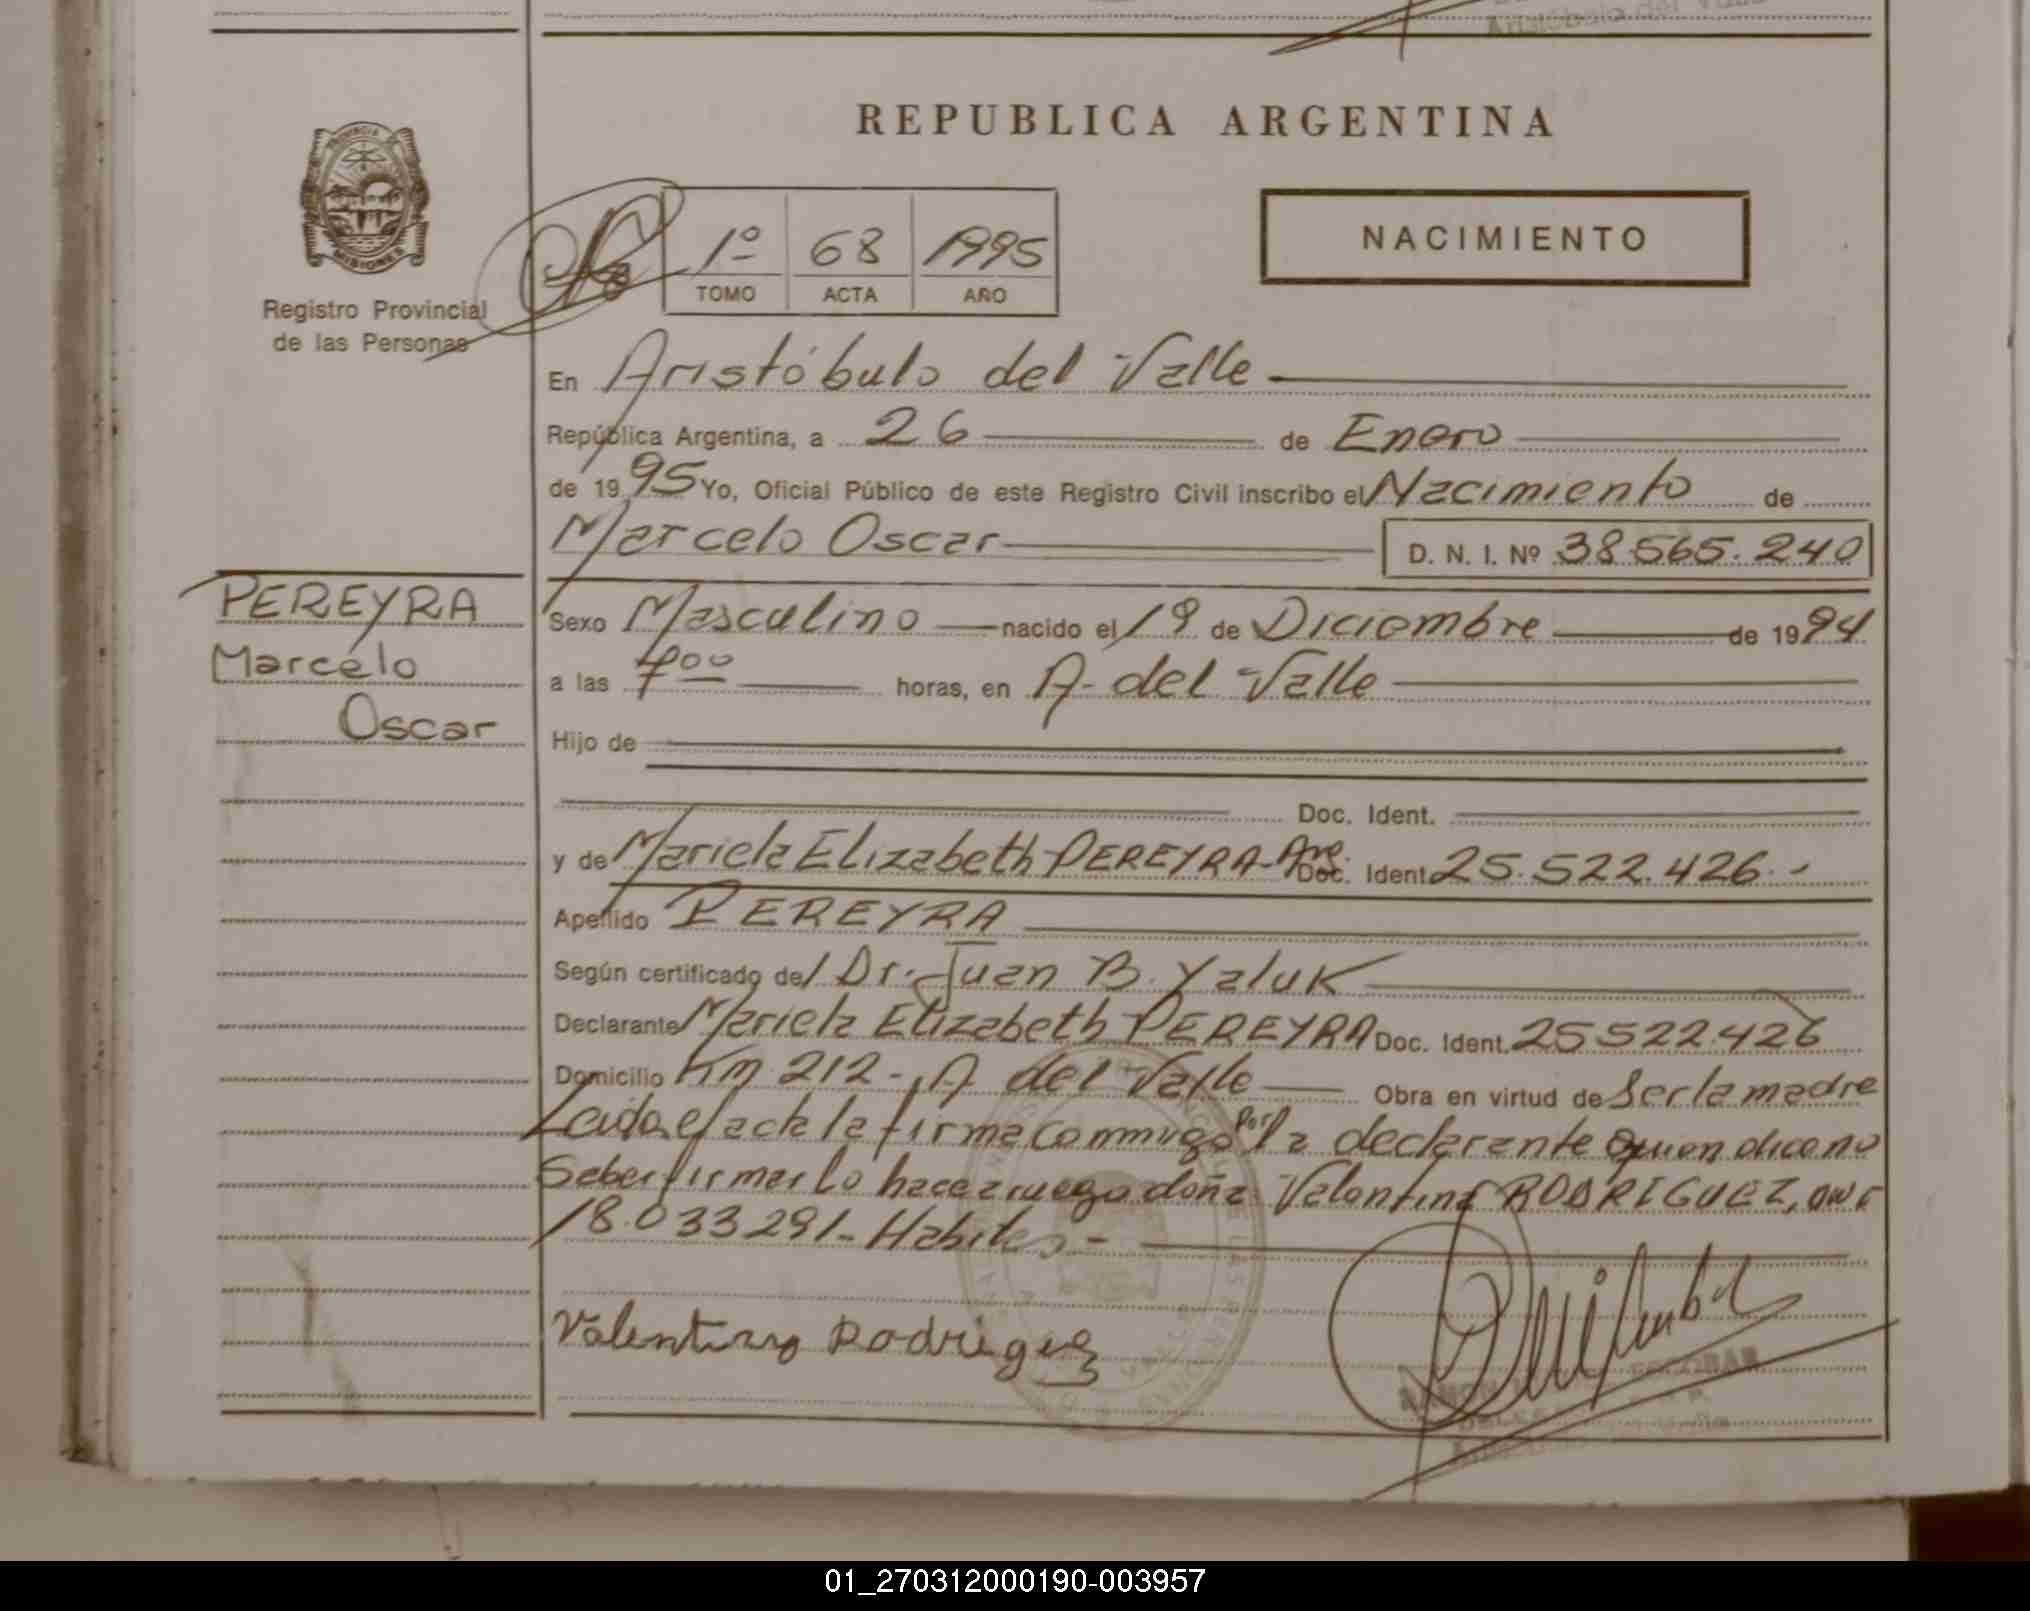 Aristóbulo del Valle
REPUBLICA ARGENTINA
PROVINCIA DE
MISIONES
Registro Provincial
de las Personas
1º 68 1995
TOMO ACTA AÑO
NACIMIENTO
En Aristóbulo del Valle
República Argentina, a 26 de Enero
de 1995 Yo, Oficial Público de este Registro Civil inscribo el Nacimiento de
Marcelo Oscar D. N. I. Nº 38.565.240
PEREYRA
Marcelo
Oscar
Sexo Masculino nacido el 19 de Diciembre de 1994
a las 7 00 horas, en A. del Valle
Hijo de
Doc. Ident.
y de Mariela Elizabeth PEREYRA-Arg. Doc. Ident. 25.522.426.-
Apellido PEREYRA
Según certificado del Dr. Juan B. Yaluk
Declarante Mariela Elizabeth PEREYRA Doc. Ident. 25522.426
Domicilio Km 212 - A del Valle Obra en virtud de Ser la madre
Leida el acta la firma conmigo Por la declarante quien dice no
Saber firmar lo hace a ruego doña Valentina RODRIGUEZ,
18.033291- Habiles -
Valentina Rodriguez
ESCOBAR
01_270312000190-003957